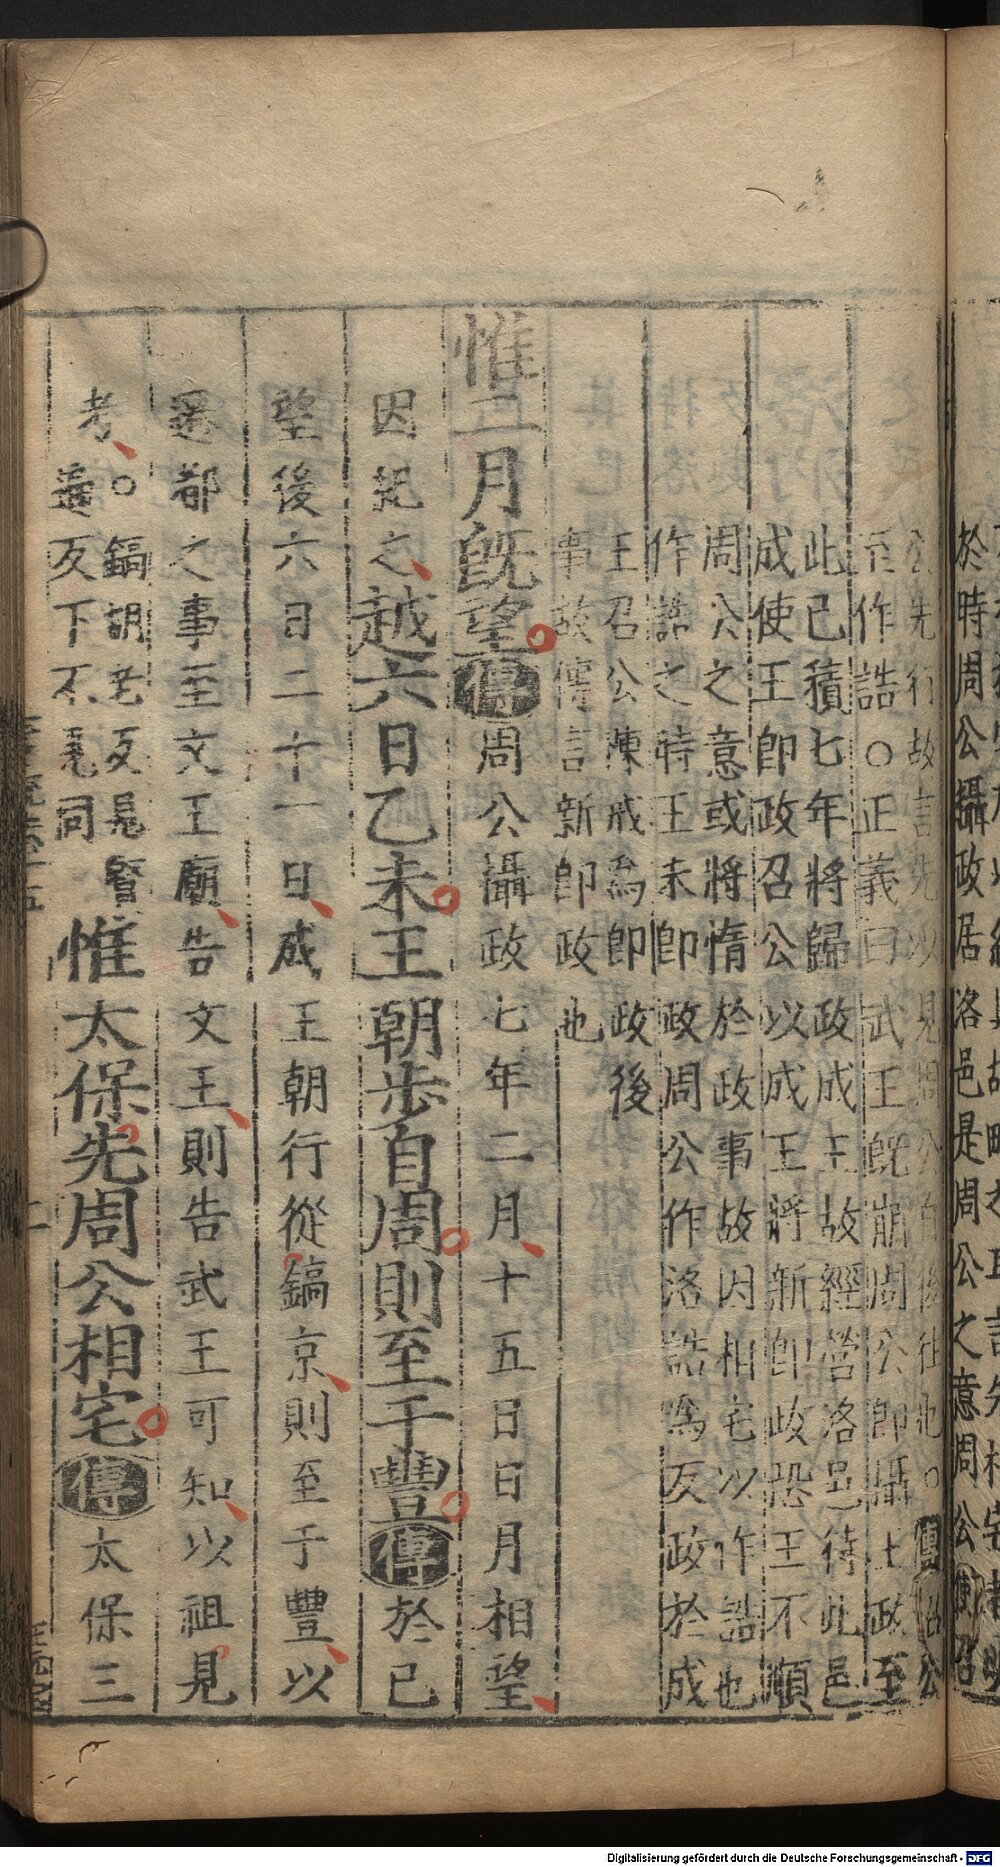 於時周公攝政居洛邑是周公之意周公
公先行故言先以見周公自後往也○傳召公
至作誥○正義曰武王既崩周公即攝王政至
此已積七年將歸政成王故經營洛邑待此邑
成使王即政召公以成王將新即政恐王不順
周公之意或將惰於政事故因相宅以作誥也
作誥之時王未即政周公作洛誥為反政於成
王召公陳戒為即政後
事故傳言新即政也
惟二月既望傳周公攝政七年二月十五日日月相望
因紀之越六日乙未王朝步自周則至于豐傳於已
望後六日二十一日成王朝行從鎬京則至于豐以
遷都之事至文王廟告文王則告武王可知以祖見
考○鎬胡老反見賢
遍反下不見同
惟太保先周公相宅傳太保三
Digitalisierung gefördert durch die Deutsche Forschungsgemeinschaft - DFG